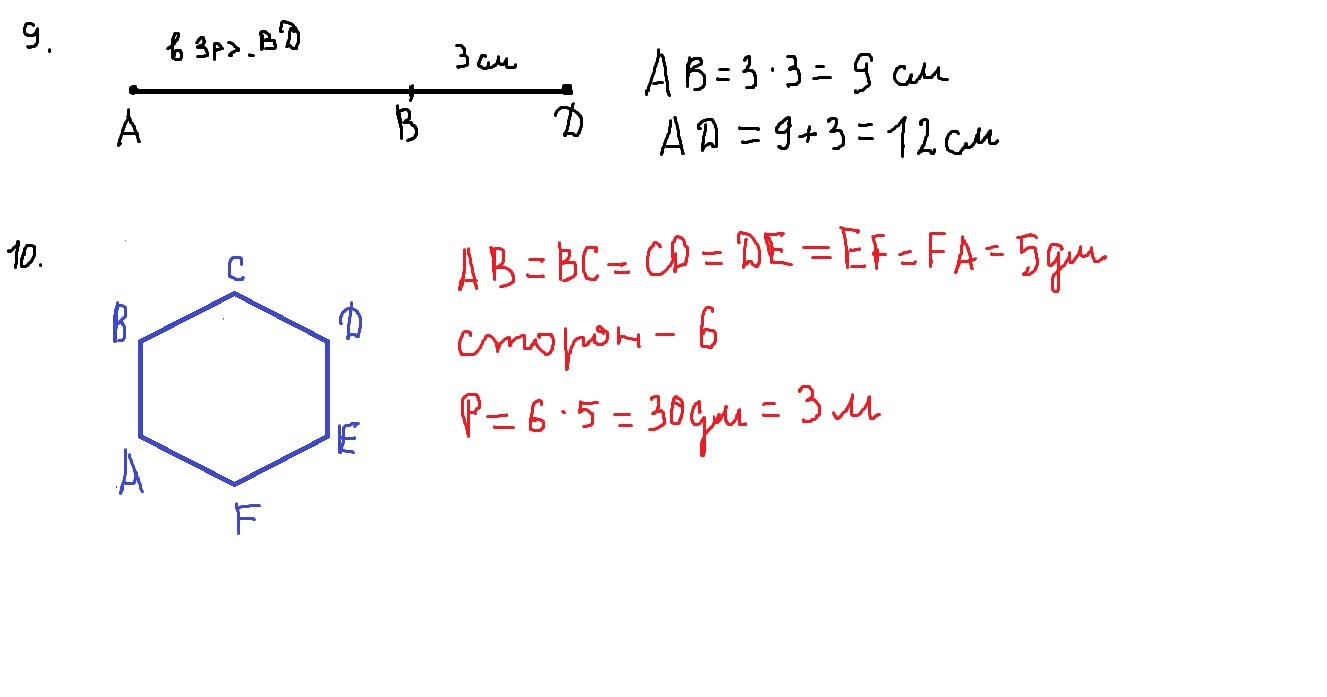 9.
в 3р>. BD
3 см
A
B
D
AB = 3 · 3 = 9 см
AD = 9 + 3 = 12 см
10.
C
B
D
A
E
F
AB = BC = CD = DE = EF = FA = 5 дм
сторон - 6
P = 6 · 5 = 30 дм = 3 м